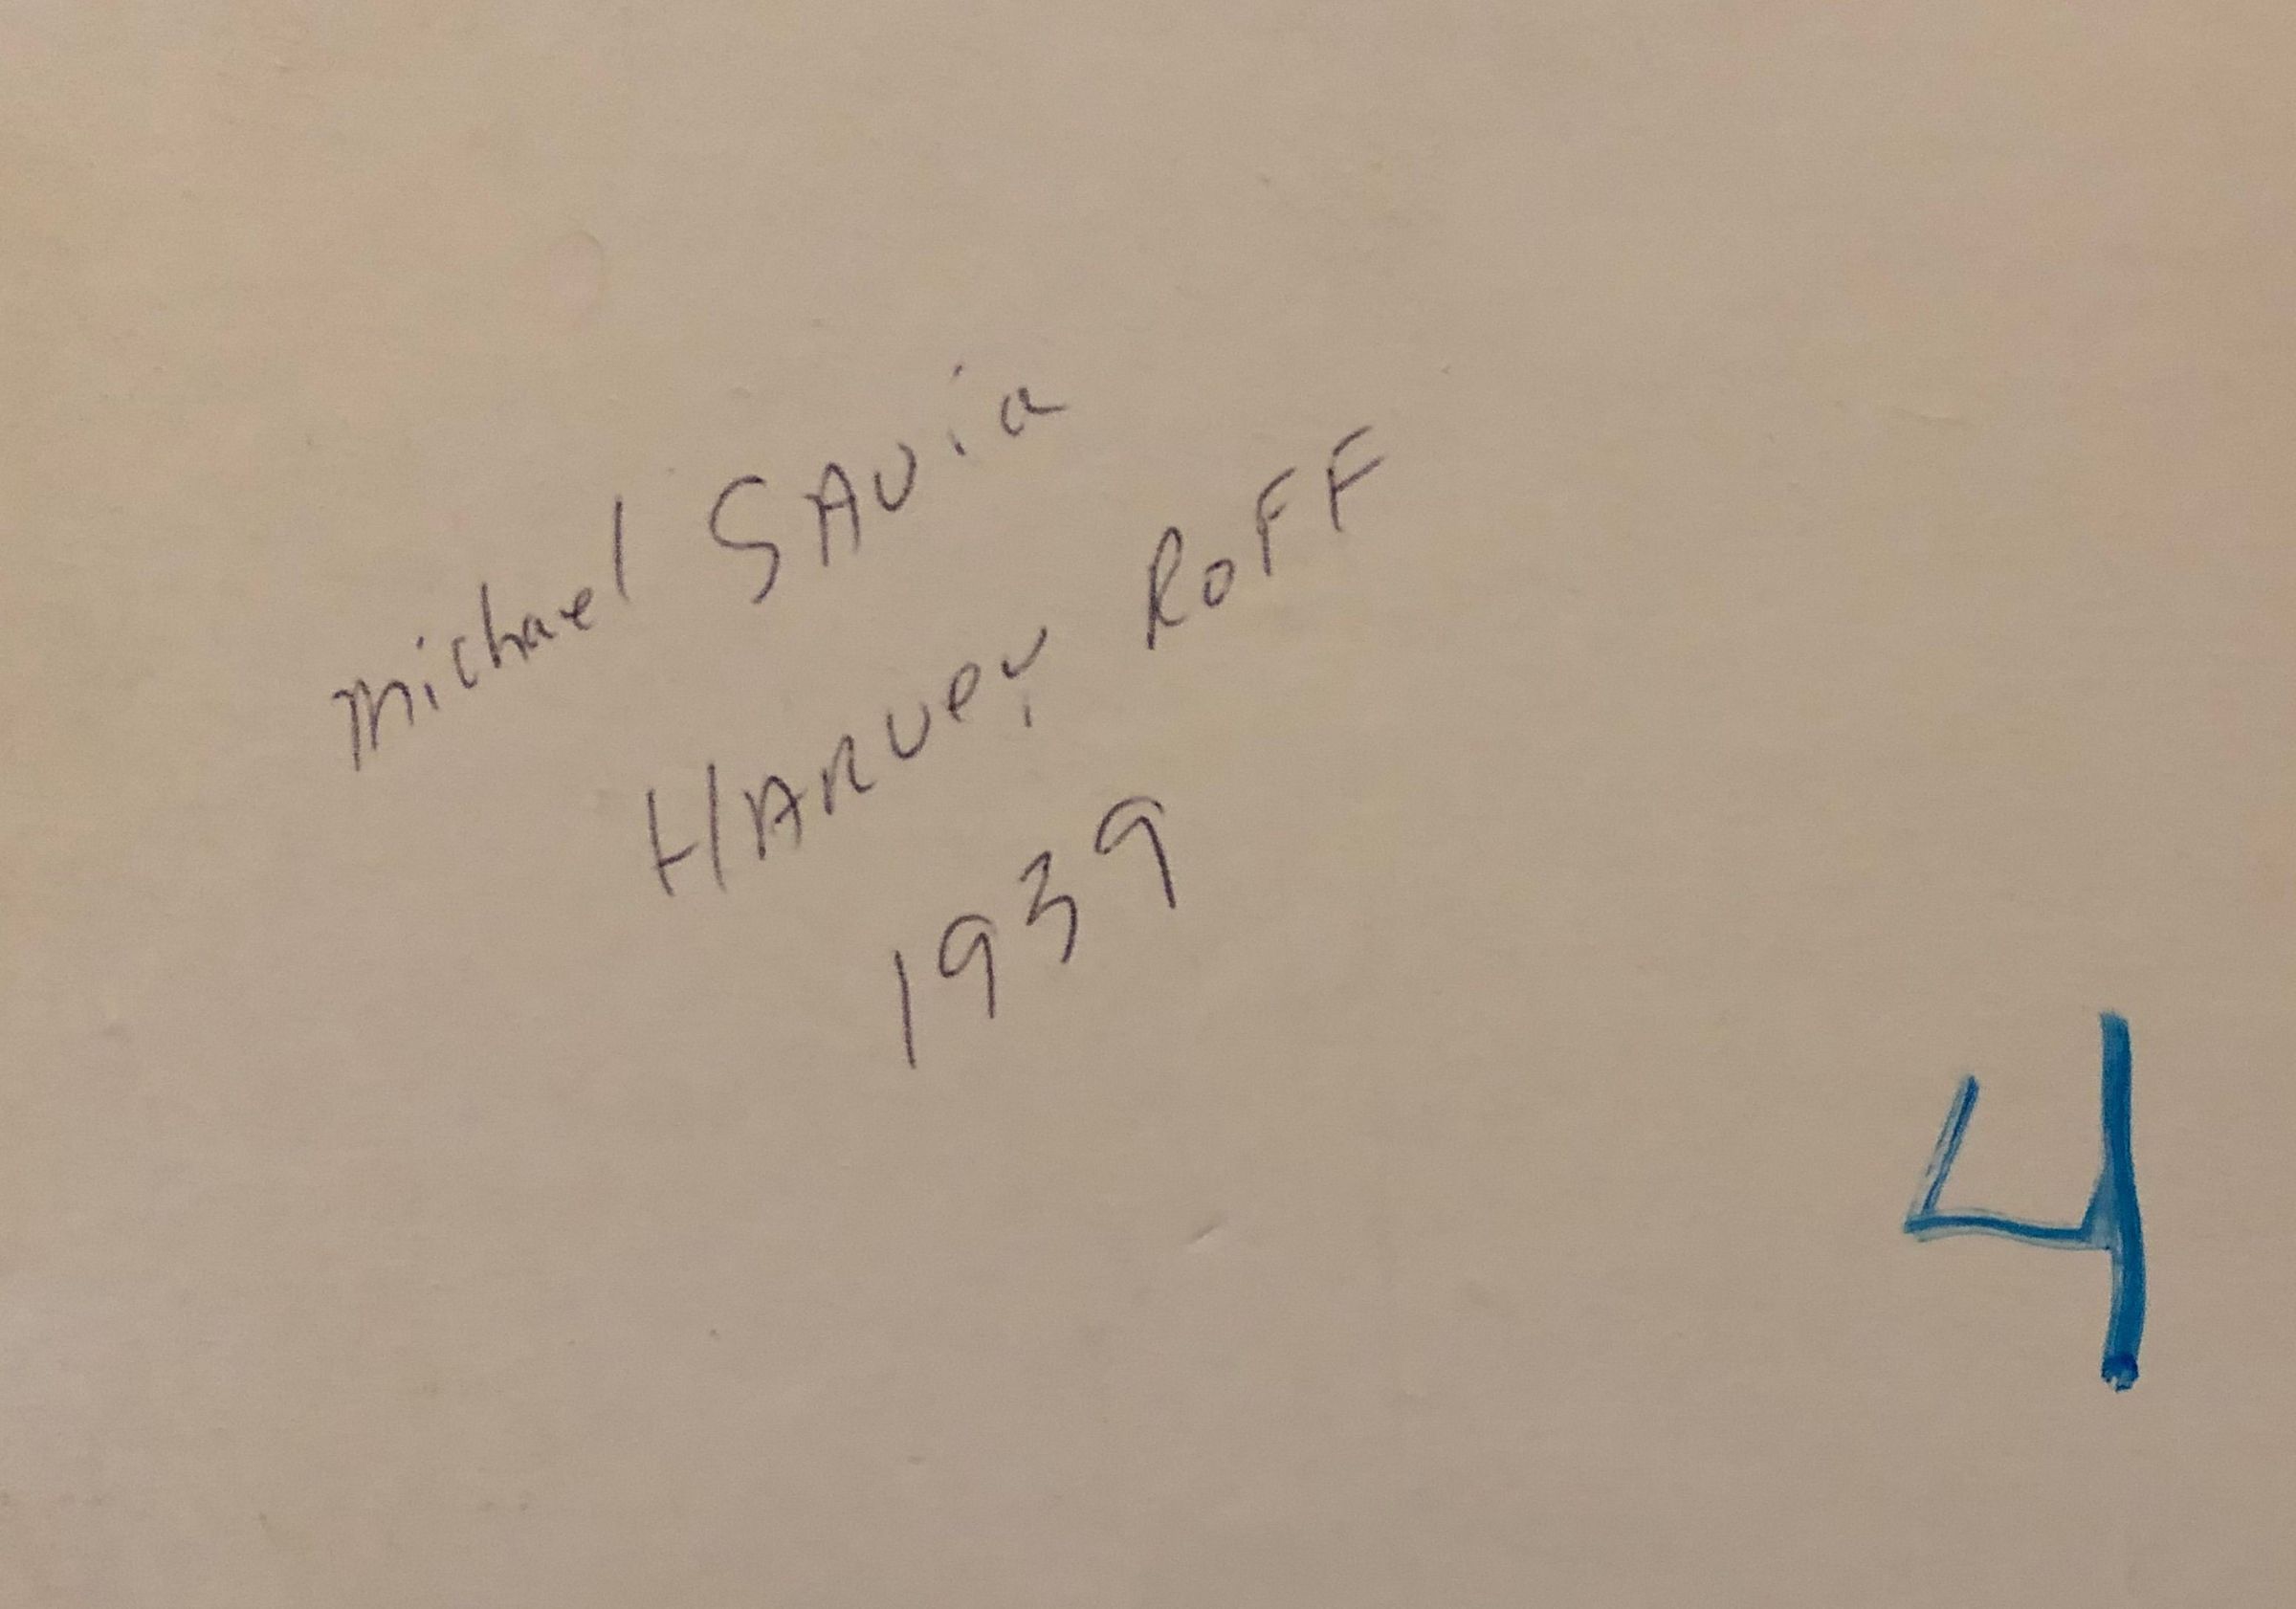 Michael SAvia
HARvey RoFF
1939
4